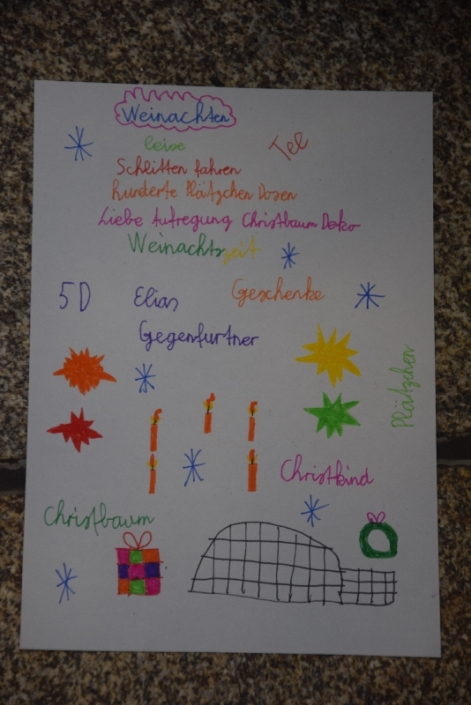 Weinachten
leise
Tee
Schlitten fahren
hunderte Plätzchen Dosen
Liebe Aufregung Christbaum Deko
Weinachtszeit
5D Elias Geschenke
Gegenfurtner
Plätzchen
Christkind
Christbaum